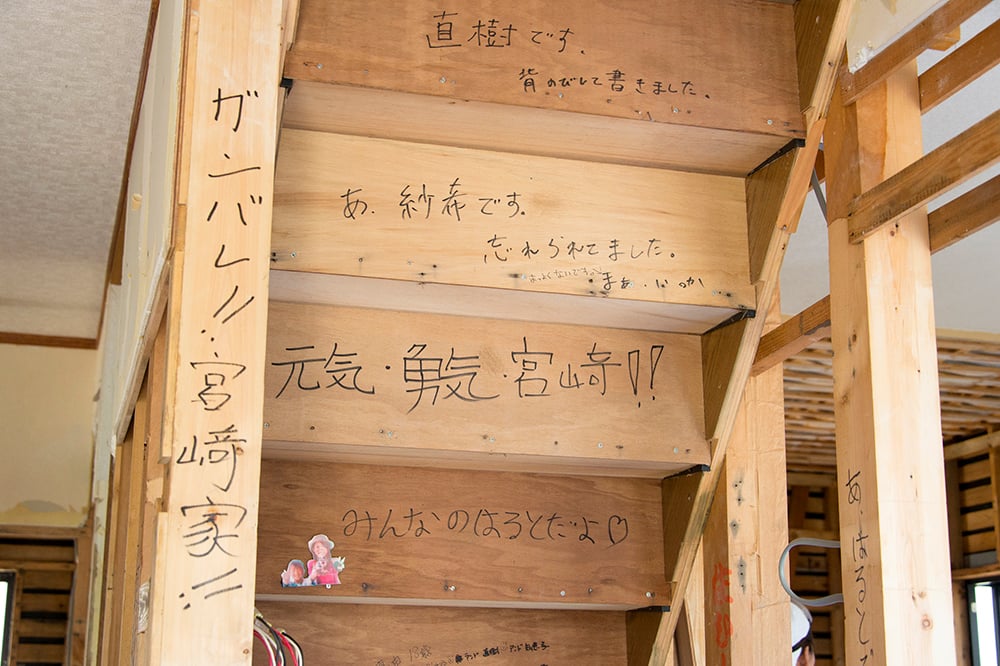 ガンバレ!! 宮崎家!!
直樹です。
背のびして書きました。
あ、紗希です。
忘れられてました。
よくないですよ
まぁ、いっか
元気・勇気・宮崎!!
みんなのはるとだよ♡
13歳
直樹
あ、はると